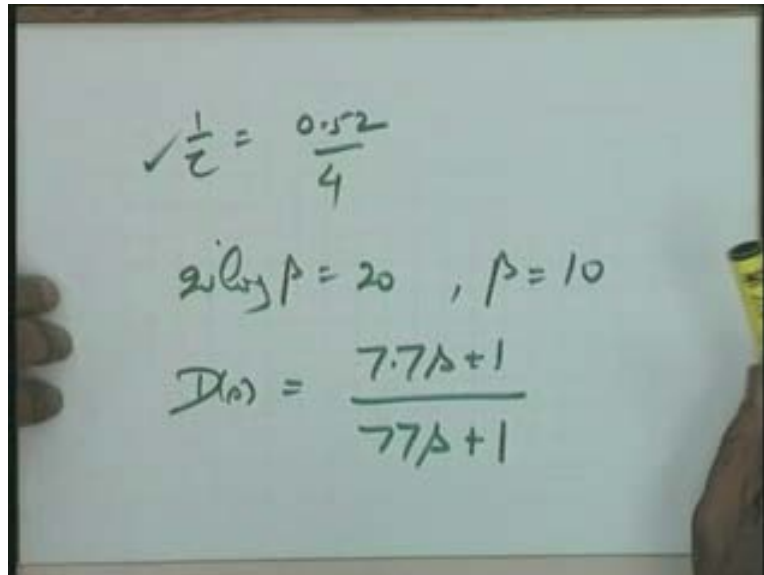 ✓ 1/τ = 0.52/4
20 log β = 20 , β = 10
D(s) = 7.7s+1 / 77s+1